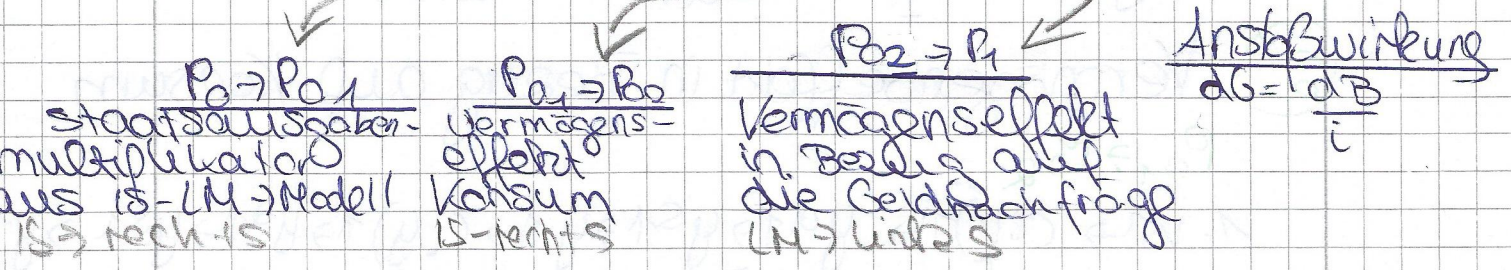 P₀ → P₀₁
Staatsausgaben-
multiplikator
aus IS-LM → Modell
IS → rechts
P₀₁ → P₀₂
Vermögens-
effekt
Konsum
IS-rechts
P₀₂ → P₁
Vermögenseffekt
in Bezug auf
die Geldnachfrage
LM → links
Anstoßwirkung
dG = dB
i